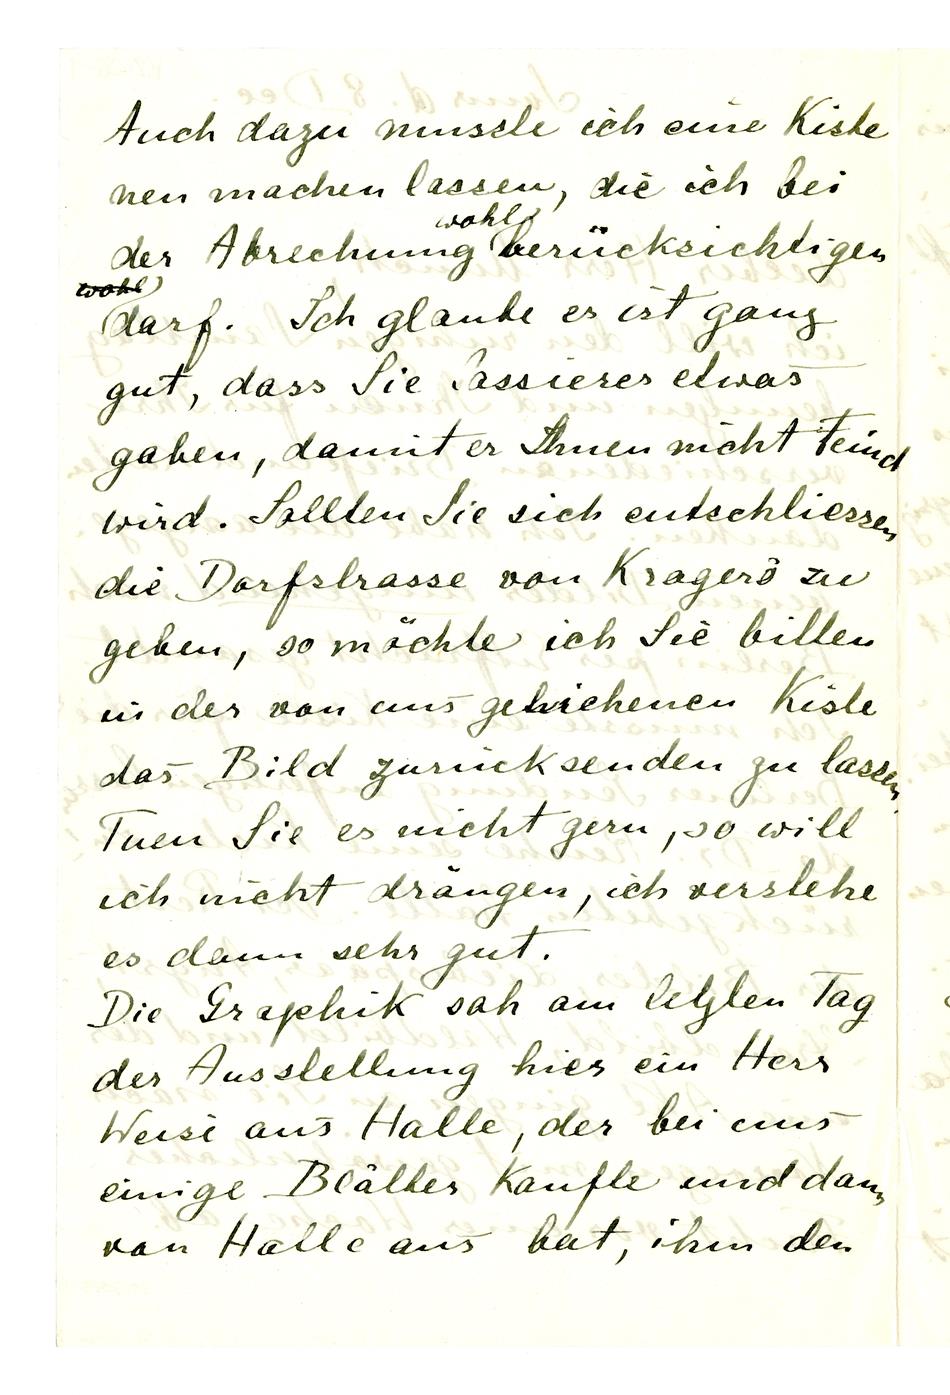 Auch dazu musste ich eine Kiste
neu machen lassen, die ich bei
wohl
der Abrechnung berücksichtigen
wohl
darf. Ich glaube es ist ganz
gut, dass Sie Cassierer etwas
gaben, damit er Ihnen nicht Feind
wird. Sollten Sie sich entschliessen
die Dorfstrasse von Kragerö zu
geben, so möchte ich Sie bitten
in der von uns geliehenen Kiste
das Bild zurücksenden zu lassen.
Tuen Sie es nicht gern, so will
ich nicht drängen, ich verstehe
es dann sehr gut.
Die Graphik sah am letzten Tag
der Ausstellung hier ein Herr
Weise aus Halle, der bei uns
einige Blätter kaufte und dann
von Halle aus bat, ihm den